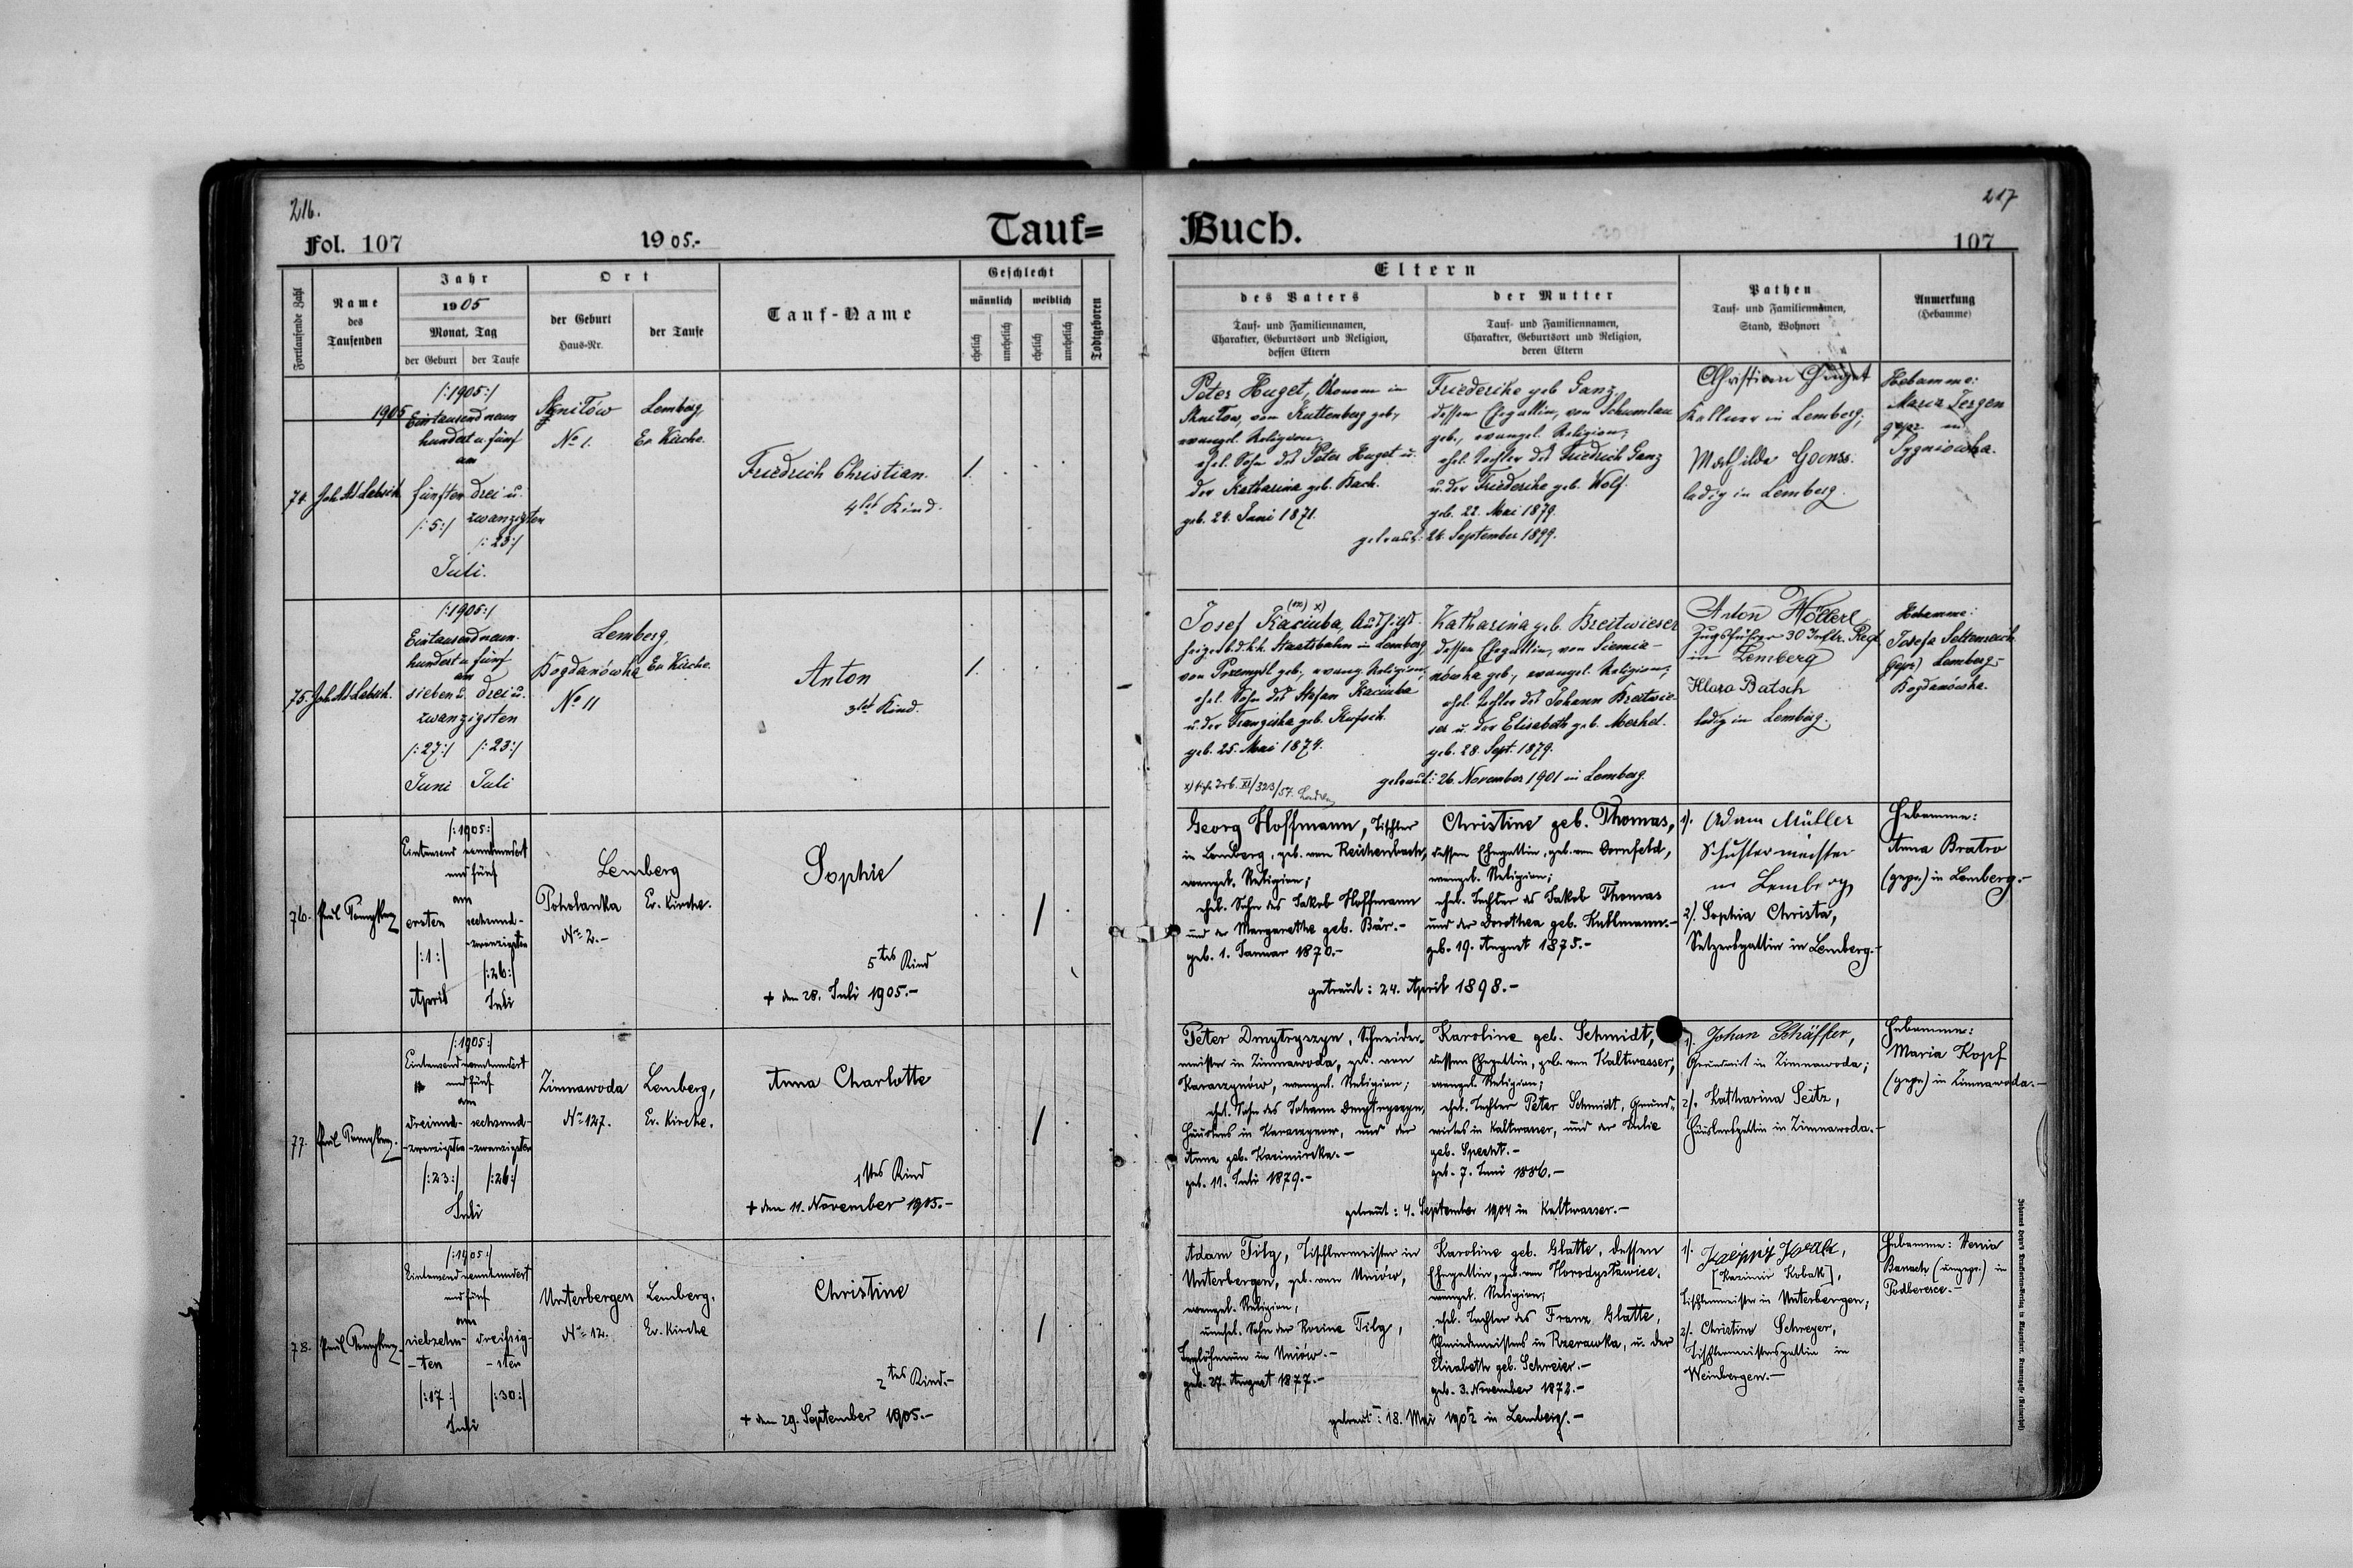 216.
Fol. 107
1905.-
Tauf=
Buch.
217
107
Fortlaufende Zahl
Name
des
Taufenden
Jahr
1905
Monat, Tag
der Geburt
der Taufe
Ort
der Geburt
Haus-Nr.
der Taufe
Tauf-Name
Geschlecht
männlich
weiblich
ehelich
unehelich
ehelich
unehelich
Todtgeboren
Eltern
des Vaters
Tauf- und Familiennamen,
Charakter, Geburtsort und Religion,
dessen Eltern
der Mutter
Tauf- und Familiennamen,
Charakter, Geburtsort und Religion,
deren Eltern
Pathen
Tauf- und Familiennamen,
Stand, Wohnort
Anmerkung
(Hebamme)
74.
1905
/:1905:/
Eintausend neun
hundert u. fünf
am
fünften
/:5:/
drei u.
zwanzigsten
/:23:/
Juli.
Sknilów
No 1.
Lemberg,
Ev. Kirche.
Friedrich Christian.
4tes Kind.
1.
Peter Huget, Ökonom in
Sknilow, von Kuttenberg geb.,
evangel. Religion,
ehel. Sohn des Peter Huget u.
der Katharina geb. Bach.
geb. 24. Juni 1871.
Friederike geb. Ganz,
dessen Ehegattin, von Schumlau
geb., evangel. Religion,
ehel. Tochter des Friedrich Ganz
u. der Friederike geb. Wolf.
geb. 22. Mai 1879.
getraut: 24. September 1899.
Christian
Kellner in Lemberg;
Mathilde
ledig in Lemberg.
Hebamme:
Maria Jergen
gepr. in
Sygniówka.
75.
/:1905:/
Eintausend neun-
hundert u. fünf
am
sieben u. drei u.
zwanzigsten
/:27:/ /:23:/
Juni Juli
Lemberg
Bogdanówka
No 11
Ev. Kirche.
Anton
3tes Kind.
1.
Josef Kaciuba,
(m) x)
k.k. Staatsbahn in Lemberg,
von Przemysl geb., evang. Religion,
ehel. Sohn des Stefan Kaciuba
u. der Franziska geb.
geb. 25. Mai 1874.
Katharina geb. Breitwieser
dessen Ehegattin, von Siemia-
nówka geb., evangel. Religion,
ehel. Tochter des Johann Breitwie-
ser u. der Elisabeth geb. Merkel.
geb. 28. Sept. 1879.
getraut: 26. November 1901 in Lemberg.
Anton Höllerl
Zugsführer 30 Inftr. Regt
in Lemberg
Klara Batsch
ledig in Lemberg.
Hebamme:
Josefa
(gepr.) Lemberg-
Bogdanówka.
76.
/:1905:/
Eintausend neunhundert
und fünf
am
ersten
/:1:/
April
sechsund-
-zwanzigsten
/:26:/
Juli
Lemberg
Poholanka
No 2.-
Ev. Kirche.
Sophie
5tes Kind
+ den 28. Juli 1905.-
Georg Hoffmann, Tischler
in Lemberg, geb. von Reichenbach,
evangel. Religion;
ehel. Sohn des Jakob Hoffmann
und der Margarethe geb. Bär.-
geb. 1. Januar 1870.-
Christine geb. Thomas,
dessen Ehegattin, geb. von Dornfeld,
evangel. Religion;
ehel. Tochter des Jakob Thomas
und der Dorothea geb. Kuhlmann.-
geb. 19. August 1875.-
getraut: 24. April 1898.-
1/. Adam Müller
Schustermeister
in Lemberg
2/. Sophia Christa,
Setzersgattin in Lemberg.-
Hebamme:
Anna Bratro
(gepr.) in Lemberg.-
77.
/:1905:/
Eintausend neunhundert
und fünf
am
dreiund- sechsund-
-zwanzigsten -zwanzigsten
/:23:/ /:26:/
Juli
Zimnawoda
No 127.
Lemberg,
Ev. Kirche.
Anna Charlotte
1tes Kind
+ den 11. November 1905.-
Peter Dmytryszyn, Schneider-
meister in Zimnawoda, geb. von
Karaczynów, evangel. Religion;
ehel. Sohn des Johann Dmytryszyn,
in Karaczynow, und der
Anna geb.
geb. 11. Juli 1879.-
Karoline geb. Schmidt,
dessen Ehegattin, geb. von Kaltwasser,
evangel. Religion;
ehel. Tochter Peter Schmidt, Grund-
wirtes in Kaltwasser, und der Julie
geb. Specht.-
geb. 7. Juni 1886.-
getraut: 4. September 1904 in Kaltwasser.-
1/. Johan Schäffer,
Grundwirt in Zimnawoda;
2/. Katharina Seitz,
Häuslersgattin in Zimnawoda.-
Hebamme:
Maria Kopf
(gepr.) in Zimnawoda.-
78.
/:1905:/
Eintausend neunhundert
und fünf
am
siebzehn- dreissig-
-ten -sten
/:17:/ /:30:/
Juli
Unterbergen
No 12.
Lemberg.
Ev. Kirche
Christine
2tes Kind.-
+ den 29. September 1905.-
Adam Tilg, Tischlermeister in
Unterbergen, geb. von Uniów,
evangel. Religion,
unehel. Sohn der Rosine Tilg,
Taglöhnerin in Uniów.-
geb. 27. August 1877.-
Karoline geb. Glatte, dessen
Ehegattin, geb. von Horodysławice,
evangel. Religion;
ehel. Tochter des Franz Glatte,
Schmiedemeisters in Rzerawka, u. der
Elisabeth geb. Schreier.-
geb. 3. November 1872.-
getraut: 18. Mai 1902 in Lemberg.-
1/.
[Kazimir Kobak],
Tischlermeister in Unterbergen;
2/. Christine Schreyer,
Tischlermeistersgattin in
Weinbergen.-
Hebamme:
Banach (ungepr.) in
Podberesce.-